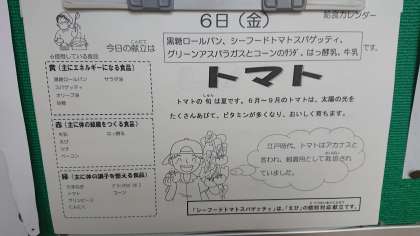 給食カレンダー
6日(金)
今日の献立は
黒糖ロールパン、シーフードトマトスパゲッティ、
グリーンアスパラガスとコーンのサラダ、はっ酵乳、牛乳
です。
黄(主にエネルギーになる食品)
黒糖ロールパン サラダ油
スパゲッティ
オリーブ油
砂糖
赤(主に体の組織をつくる食品)
牛乳 はっ酵乳
えび
ツナ
ベーコン
緑(主に体の調子を整える食品)
トマト コーン
グリンピース
にんにく
トマト
トマトの旬は夏です。6月～9月のトマトは、太陽の光を
たくさんあびて、ビタミンが多くなり、おいしく育ちます。
江戸時代、トマトはアカナスと
言われ、観賞用として栽培され
ていました。
「シーフードトマトスパゲッティ」は、「えび」の個別対応献立です。